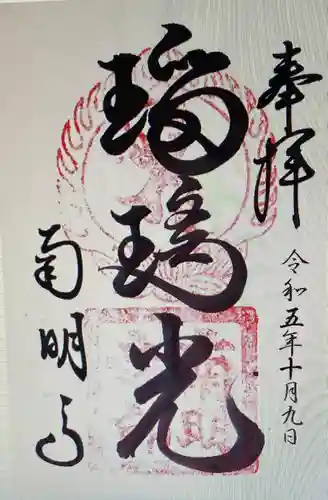 奉拝
令和五年十月九日
瑠璃光
南明寺